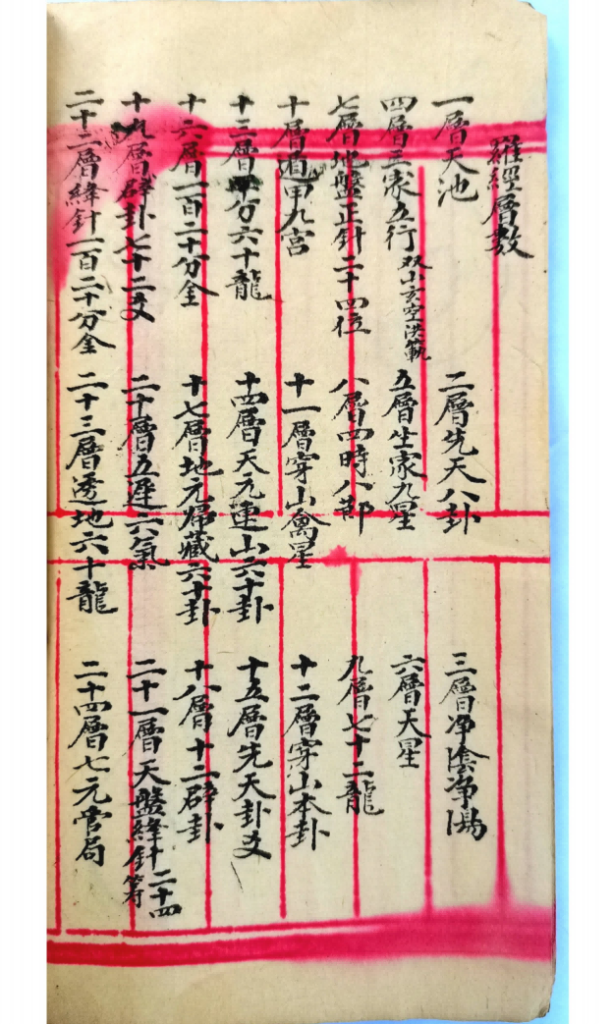 羅經層数
一層天池 二層先天八卦 三層净陰净陽
四層三家五行 双山玄空洪範 五層坐家九星 六層天星
七層地盤正針二十四位 八層四時八節 九層七十二龍
十層遁甲九宮 十一層穿山禽星 十二層穿山本卦
十三層平分六十龍 十四層天元連山六十卦 十五層先天卦爻
十六層一百二十分金 十七層地元帰藏六十卦 十八層十二辟卦
十九層辟卦七十二爻 二十層五運六氣 二十一層天盤縫針二十四
二十二層縫針一百二十分金 二十三層透地六十龍 二十四層七元管局